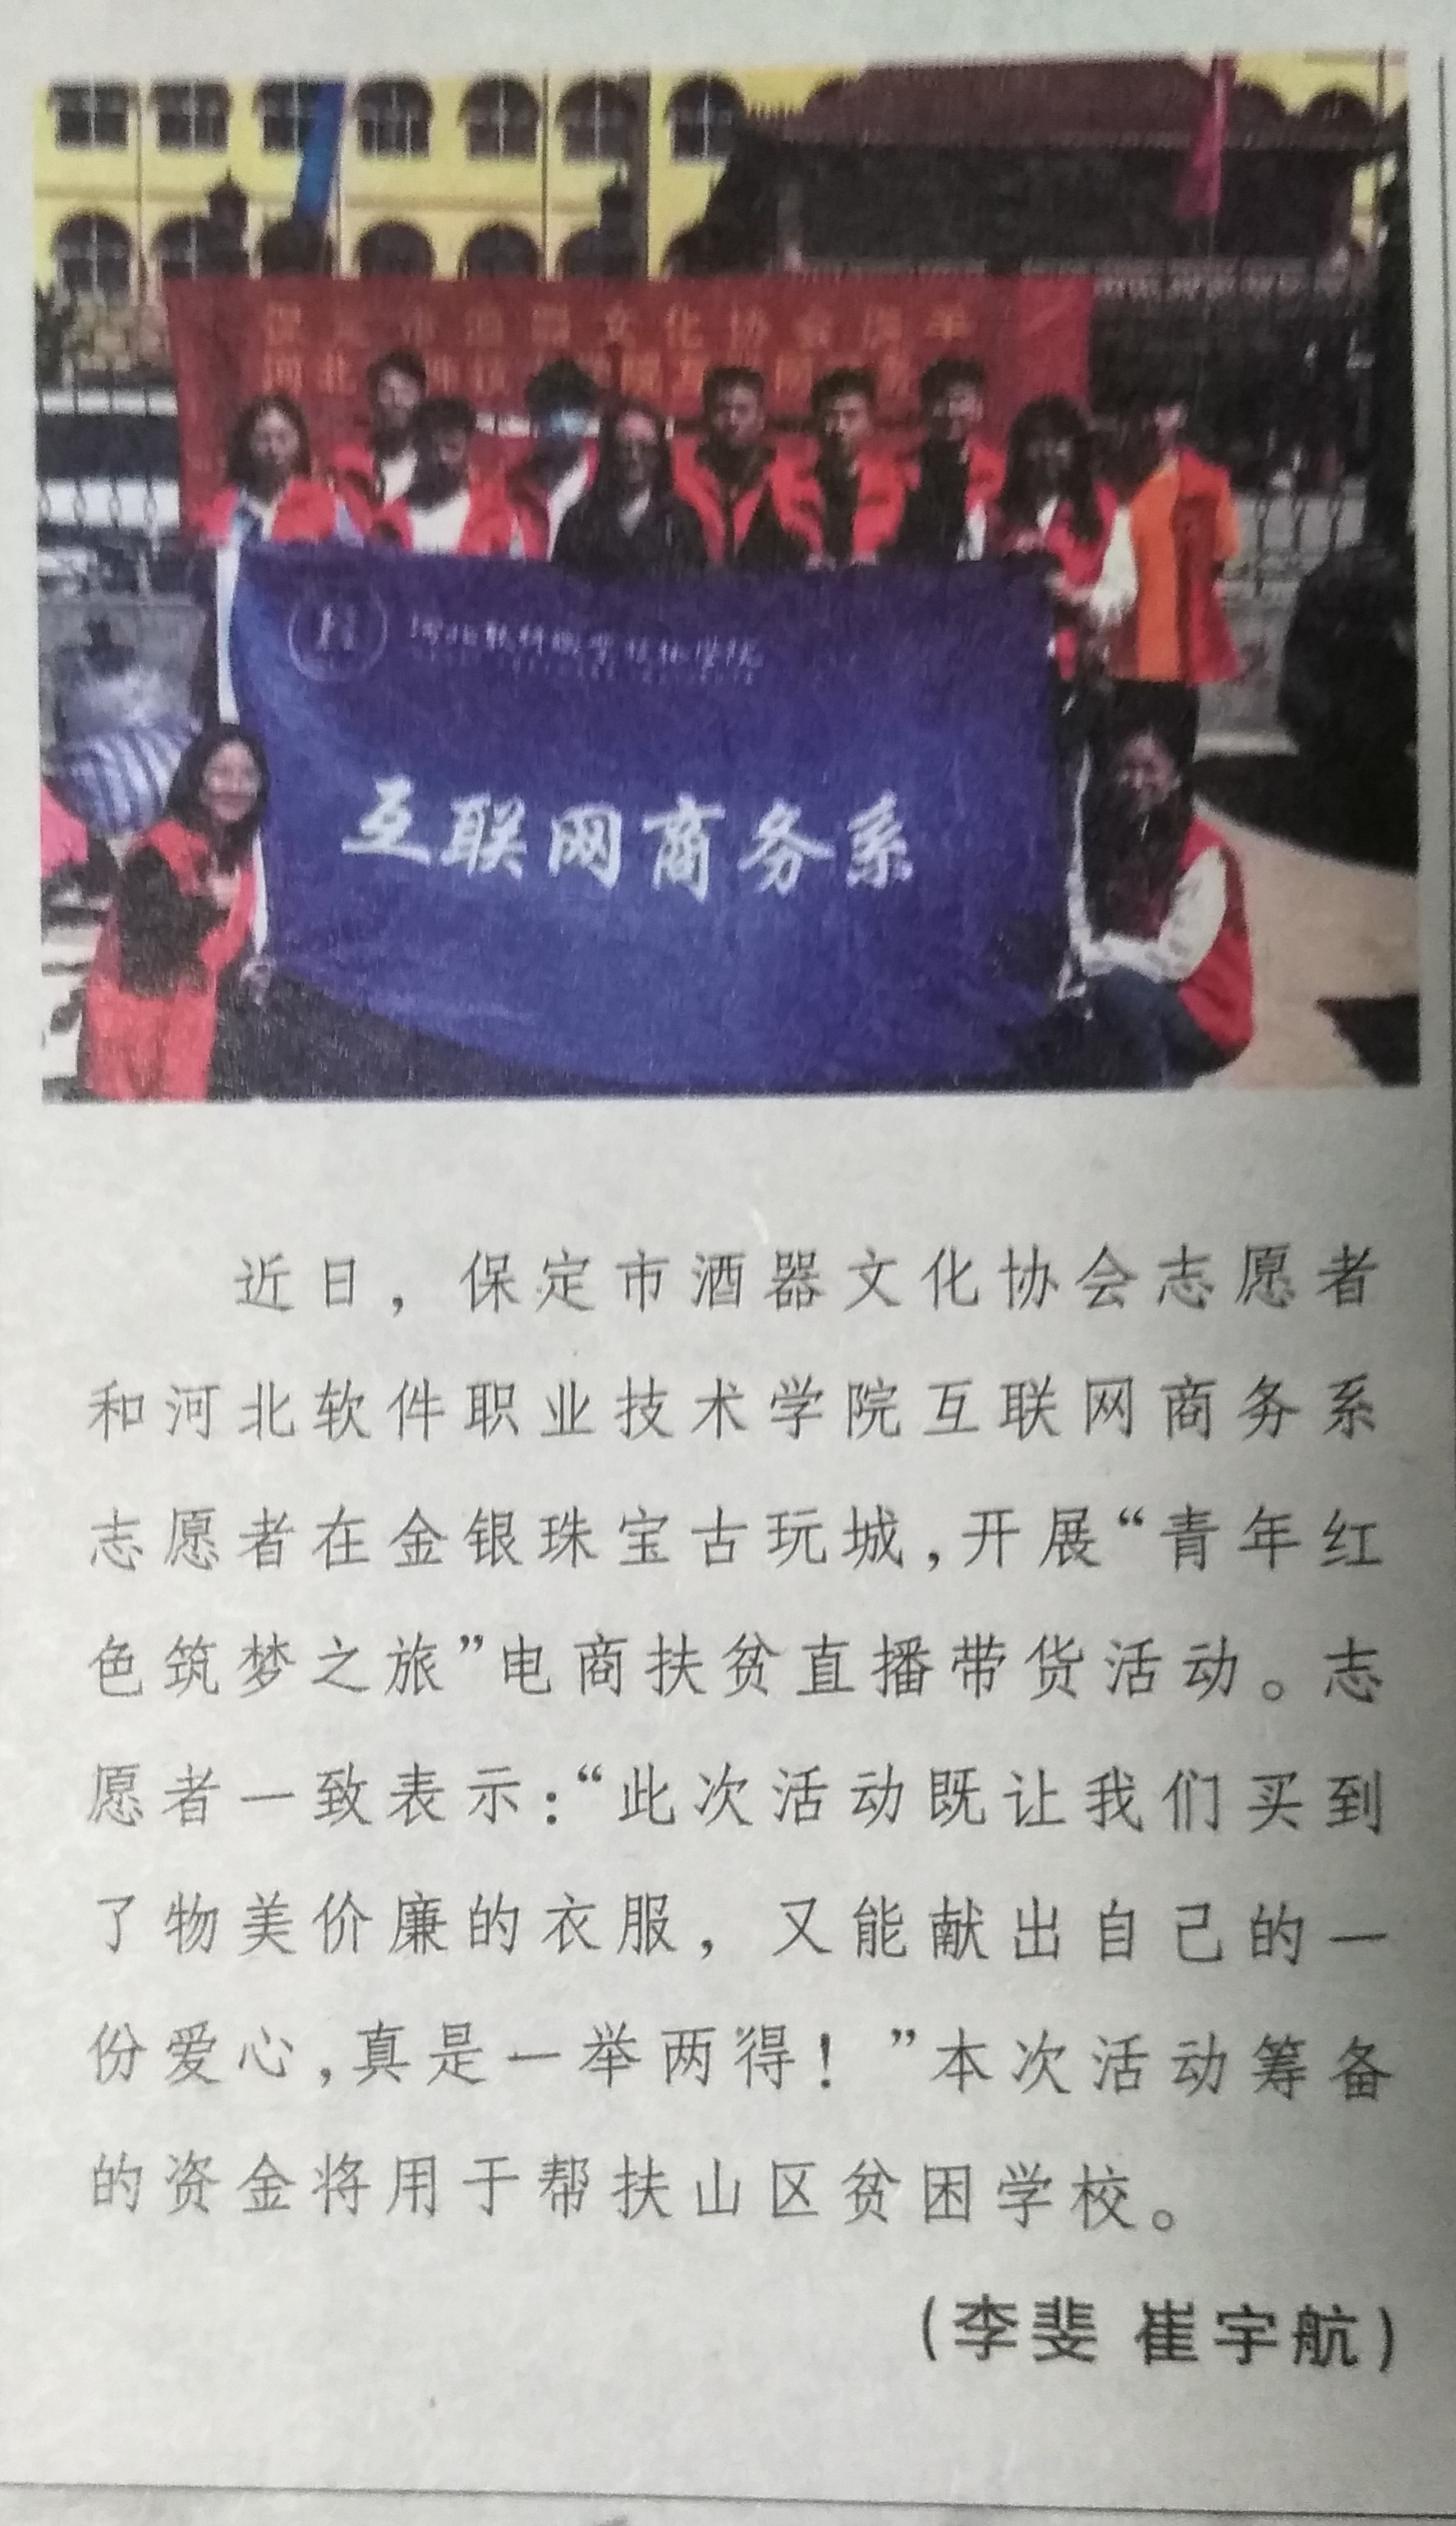 保定市酒器文化协会
河北软件职业技术学院
互联网商务系
近日，保定市酒器文化协会志愿者
和河北软件职业技术学院互联网商务系
志愿者在金银珠宝古玩城，开展“青年红
色筑梦之旅”电商扶贫直播带货活动。志
愿者一致表示：“此次活动既让我们买到
了物美价廉的衣服，又能献出自己的一
份爱心，真是一举两得！”本次活动筹备
的资金将用于帮扶山区贫困学校。
（李斐 崔宇航）